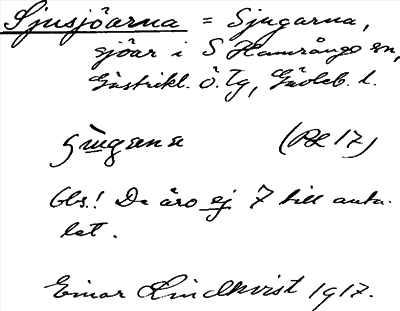 Sjusjöarna = Sjugarna,
sjöar i S Hamrånge sn,
Gästrikl. ö. Tg, Gävleb. l.
(RÄ 17)
Obs.! De äro ej 7 till anta-
let.
Einar Lindkvist 1917.